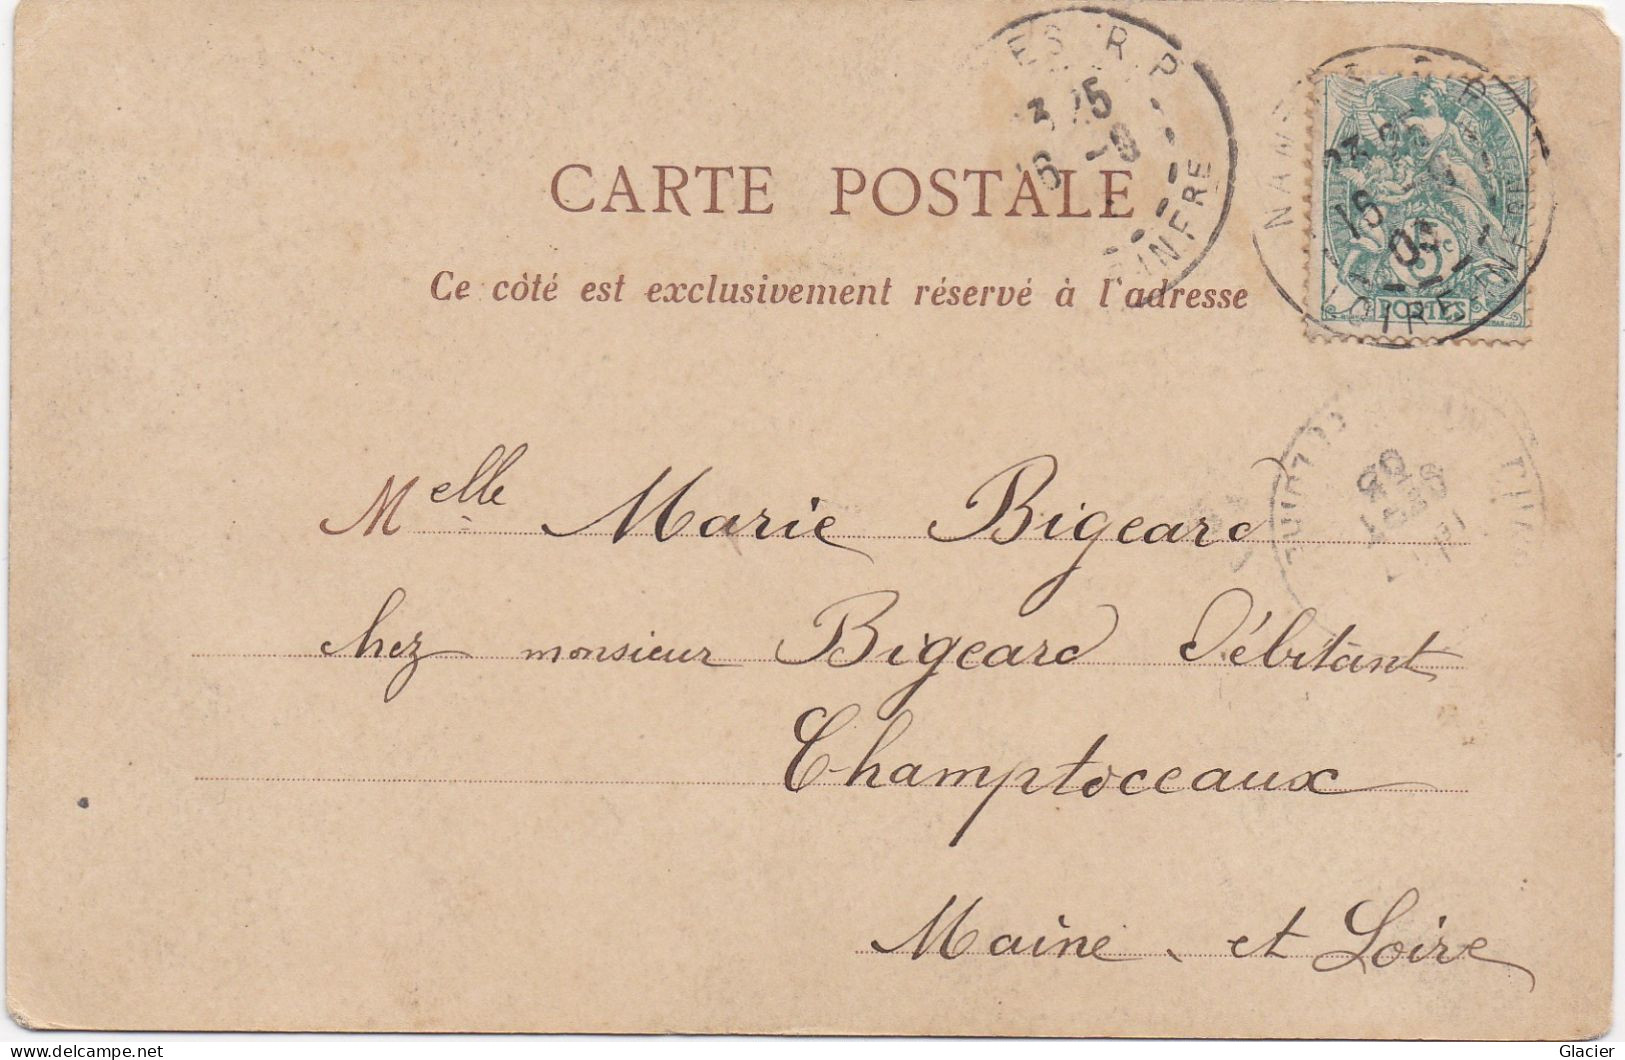 ES R.P
3 25
16 -9
INFRE
NANTES R.P
23 25
16
03
LOIRE INFRE
5c
POSTES
CARTE POSTALE
Ce côté est exclusivement réservé à l'adresse
Melle Marie Bigeard
chez monsieur Bigeard Débitant
Champtoceaux
Maine et Loire
delcampe.net
Glacier